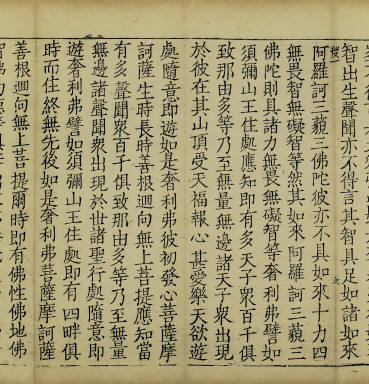 智出生聲聞亦不得言其智具足如諸如來
阿羅訶三藐三佛陀彼亦不具如來十力四
無畏智無礙智等然其如來阿羅訶三藐三
佛陀則具諸力無畏無礙智等奢利弗譬如
須彌山王住處應知即有多天子衆百千俱
致那由多等乃至無量無邊諸天子衆出現
於彼在其山頂受天福報心甚愛樂天欲遊
處隨意即遊如是奢利弗彼初發心菩薩摩
訶薩生時長時善根迴向無上菩提應知當
有多聲聞衆百千俱致那由多等乃至無量
無邊諸聲聞衆出現於世諸聖行處隨意即
遊奢利弗譬如須彌山王住處即有四畔俱
時而住終無先後如是奢利弗菩薩摩訶薩
善根迴向無上菩提爾時即有佛性佛地佛